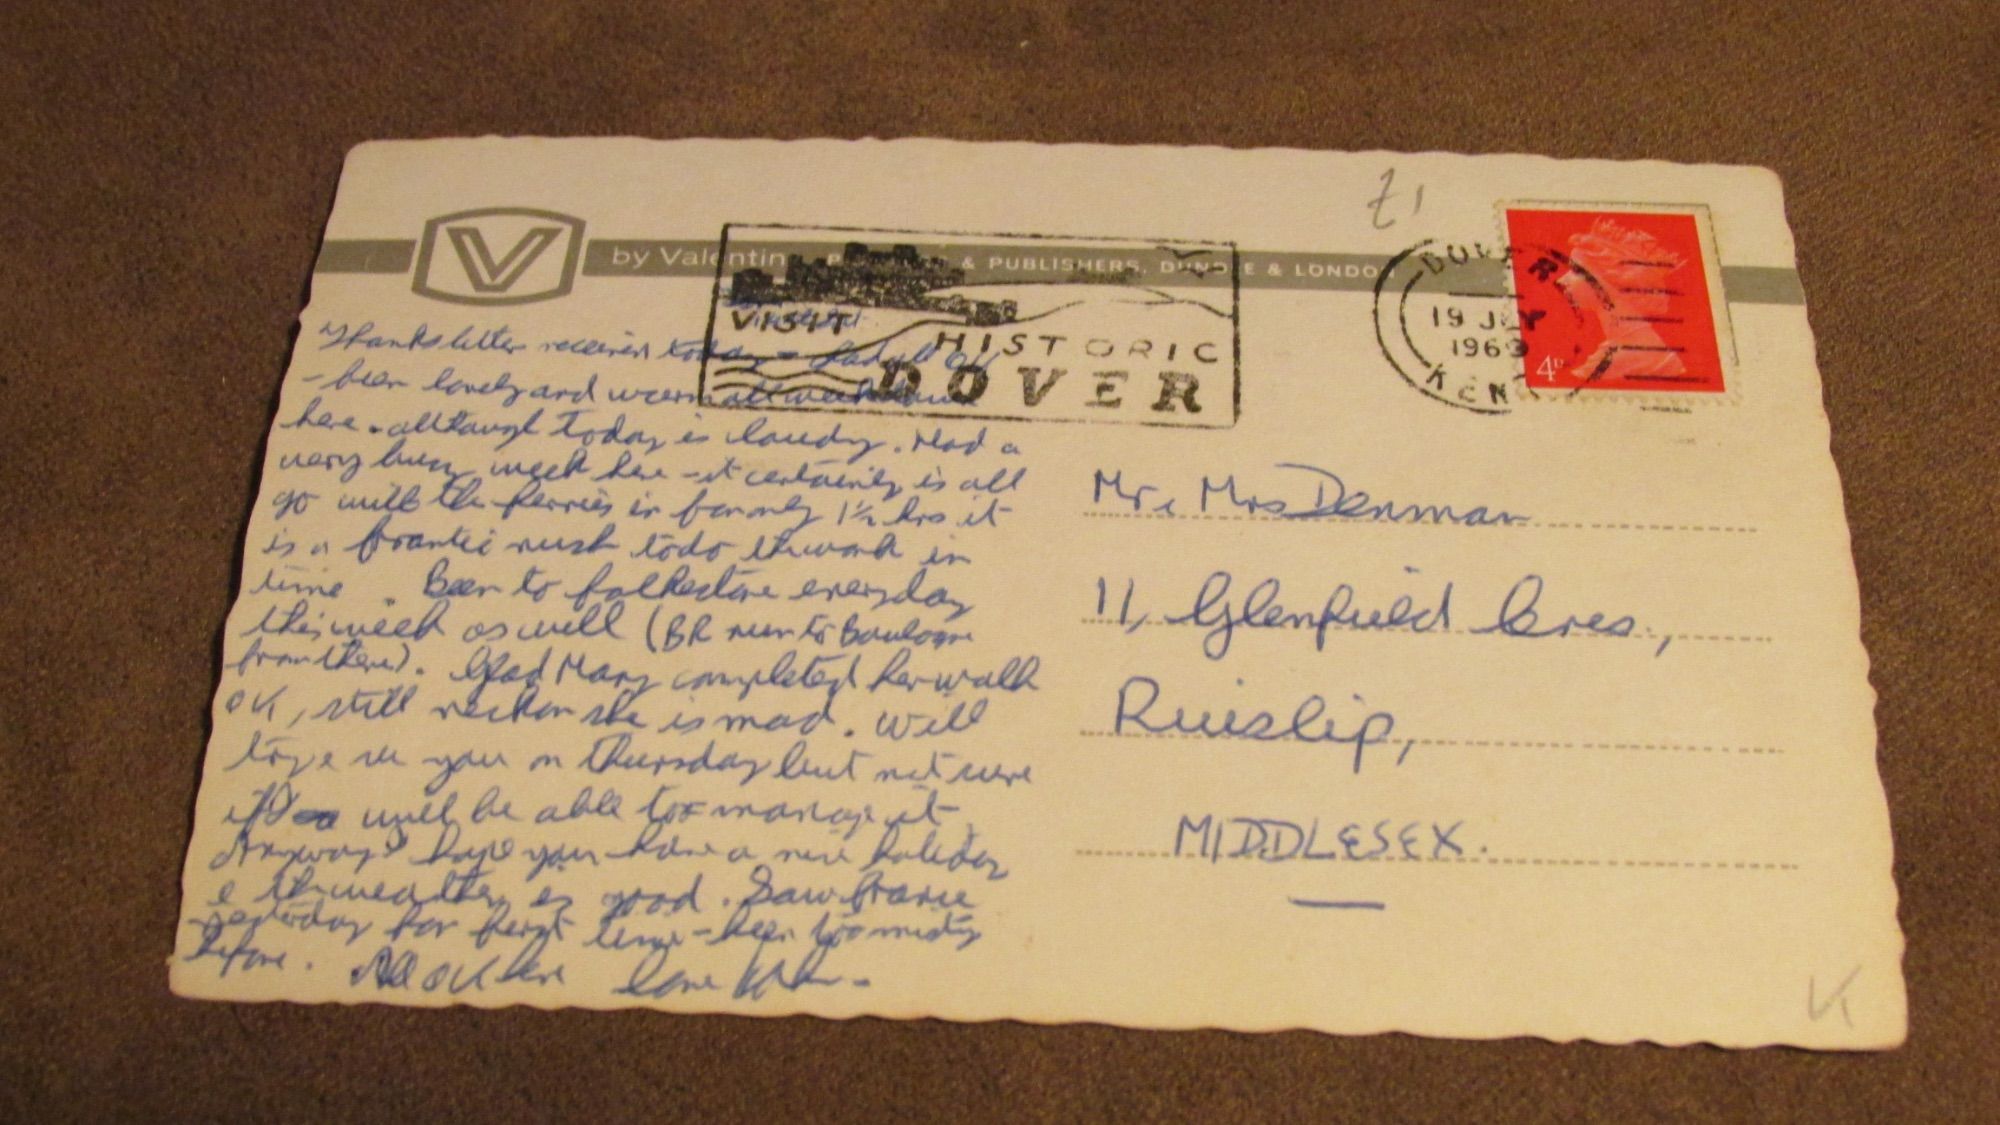 £1
V
by Valentin & PUBLISHERS, DUNDEE & LONDON
VISIT
HISTORIC
DOVER
DOVER
19 JLY
1969
KENT
4D
Thanks letter received today - Glad all OK
- been lovely and warm all week down
here - although today is cloudy. Had a
very busy week here - it certainly is all
go with the ferries in for only 1½ hrs it
is a frantic rush to do the work in
time. Been to folkestone everyday
this week as well (BR run to Boulogne
from there). Glad Mary completed her walk
OK, still reckon she is mad. Will
try e see you on thursday but not sure
if I will be able to manage it.
Anyway hope you have a nice holiday
e the weather is good. Saw france
yesterday for first time - been too misty
before. All OK here love
Mr, Mrs Denman
11, Glenfield Cres.,
Ruislip,
MIDDLESEX.